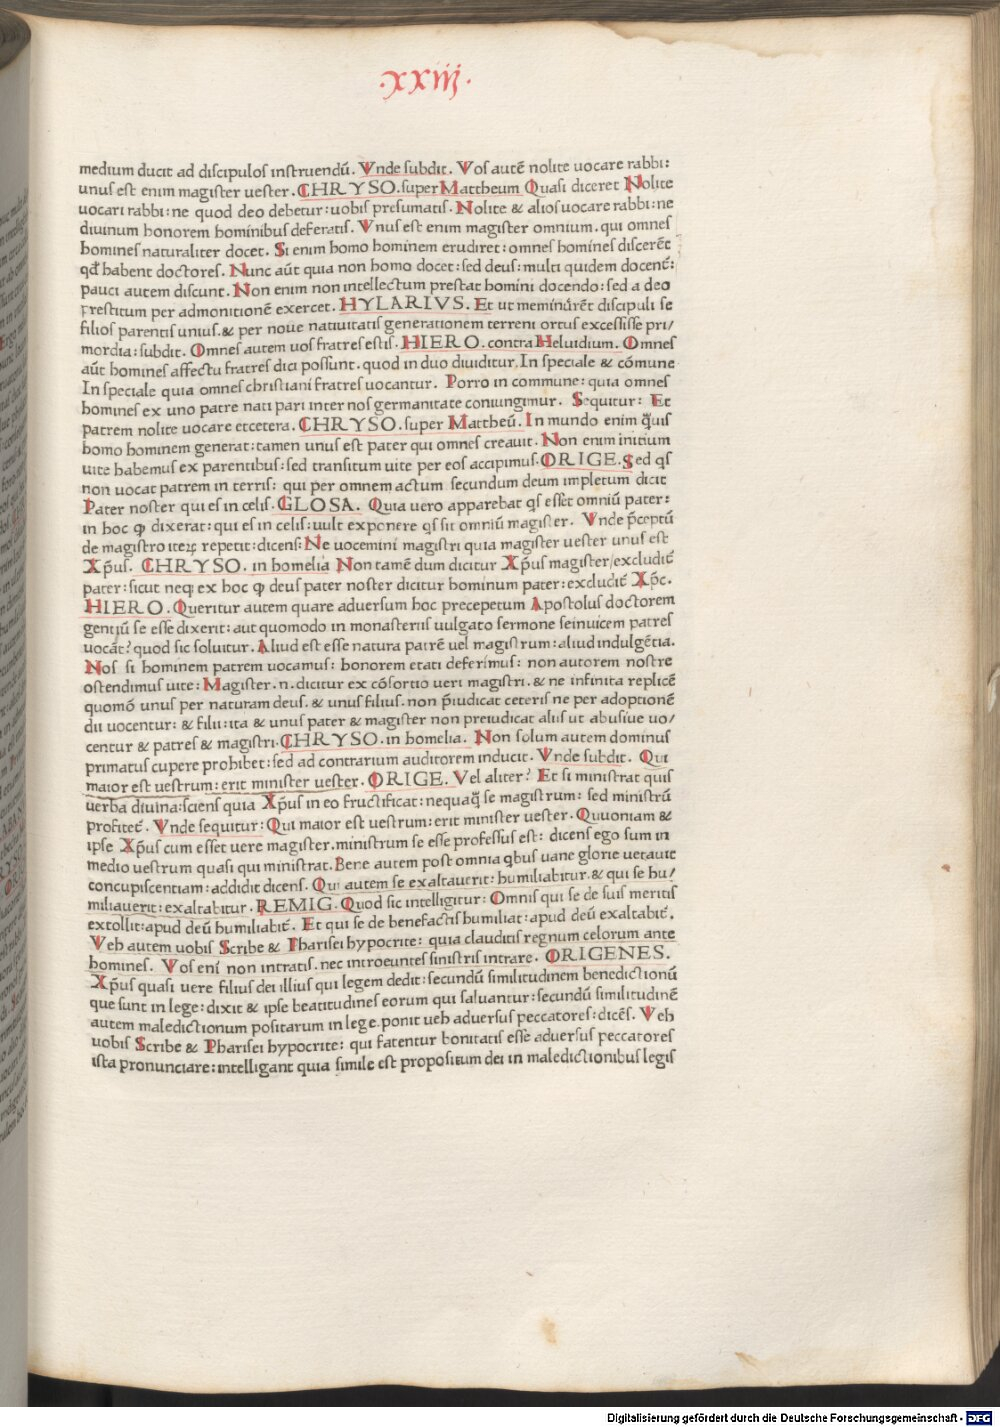 .xxiij.
medium ducit ad discipulos instruendū. Vnde subdit. Vos autē nolite uocare rabbi:
unus est enim magister uester. CHRYSO. super Mattheum Quasi diceret Nolite
uocari rabbi: ne quod deo debetur: uobis presumatis. Nolite & alios uocare rabbi: ne
diuinum honorem hominibus deferatis. Vnus est enim magister omnium. qui omnes
homines naturaliter docet. Si enim homo hominem erudiret: omnes homines discerēt
qđ habent doctores. Nunc aūt quia non homo docet: sed deus: multi quidem docent̄:
pauci autem discunt. Non enim non intellectum prestat homini docendo: sed a deo
prestitum per admonitionē exercet. HYLARIVS. Et ut meminūrēt discipuli se
filios parentis unius. & per noue natiuitatis generationem terreni ortus excessisse pri/
mordia: subdit. Omnes autem uos fratres estis. HIERO. contra Heluidium. Omnes
aūt homines affectu fratres dici possunt. quod in duo diuiditur. In speciale & cōmune
In speciale quia omnes christiani fratres uocantur. Porro in commune: quia omnes
homines ex uno patre nati pari inter nos germanitate coniungimur. Sequitur: Et
patrem nolite uocare etcetera. CHRYSO. super Mattheū. In mundo enim q̄uis
homo hominem generat: tamen unus est pater qui omnes creauit. Non enim initium
uite habemus ex parentibus: sed transitum uite per eos accipimus. ORIGE. Sed qs
non uocat patrem in terris: qui per omnem actum secundum deum impletum dicit
Pater noster qui es in celis. GLOSA. Quia uero apparebat qs esset omniū pater:
in hoc ꝙ dixerat: qui es in celis: uult exponere qs sit omniū magister. Vnde p̄ceptū
de magistro iteꝝ repetit: dicens: Ne uocemini magistri quia magister uester unus est
Xp̄us. CHRYSO. in homelia Non tamē dum dicitur Xp̄us magister/excludit̄
pater: sicut neqꝫ ex hoc ꝙ deus pater noster dicitur hominum pater: excludit̄ Xp̄c.
HIERO. Queritur autem quare aduersum hoc precepetum Apostolus doctorem
gentiū se esse dixerit: aut quomodo in monasteriis uulgato sermone seinuicem patres
uocāt? quod sic soluitur. Aliud est esse natura patrē uel magistrum: aliud indulgētia.
Nos si hominem patrem uocamus: honorem etati deferimus: non autorem nostre
ostendimus uite: Magister .n. dicitur ex cōsortio ueri magistri. & ne infinita replicē
quomō unus per naturam deus. & unus filius. non p̄iudicat ceteris ne per adoptionē
dii uocentur: & filii: ita & unus pater & magister non preiudicat aliis ut abusiue uo/
centur & patres & magistri. CHRYSO. in homelia. Non solum autem dominus
primatus cupere prohibet: sed ad contrarium auditorem inducit. Vnde subdit. Qui
maior est uestrum: erit minister uester. ORIGE. Vel aliter? Et si ministrat quis
uerba diuina: sciens quia Xp̄us in eo fructificat: nequaq̄ se magistrum: sed ministrū
profitet̄. Vnde sequitur: Qui maior est uestrum: erit minister uester. Quoniam &
ipse Xp̄us cum esset uere magister. ministrum se esse professus est: dicens ego sum in
medio uestrum quasi qui ministrat. Bene autem post omnia qbus uane glorie uetauit
concupiscentiam: addidit dicens. Qui autem se exaltauerit: humiliabitur. & qui se hu/
miliauerit: exaltabitur. REMIG. Quod sic intelligitur: Omnis qui se de suis meritis
extollit: apud deū humiliabit̄. Et qui se de benefactis humiliat: apud deū exaltabit̄.
Veh autem uobis Scribe & Pharisei hypocrite: quia clauditis regnum celorum ante
homines. Vos eni non intratis. nec introeuntes sinistris intrare. ORIGENES.
Xp̄us quasi uere filius dei illius qui legem dedit: secundū similitudinem benedictionū
que sunt in lege: dixit & ipse beatitudines eorum qui saluantur: secundū similitudinē
autem maledictionum positarum in lege. ponit ueh aduersus peccatores: dicēs. Veh
uobis Scribe & Pharisei hypocrite: qui fatentur bonitatis esse aduersus peccatores
ista pronunciare: intelligant quia simile est propositum dei in maledictionibus legis
Digitalisierung gefördert durch die Deutsche Forschungsgemeinschaft - DFG